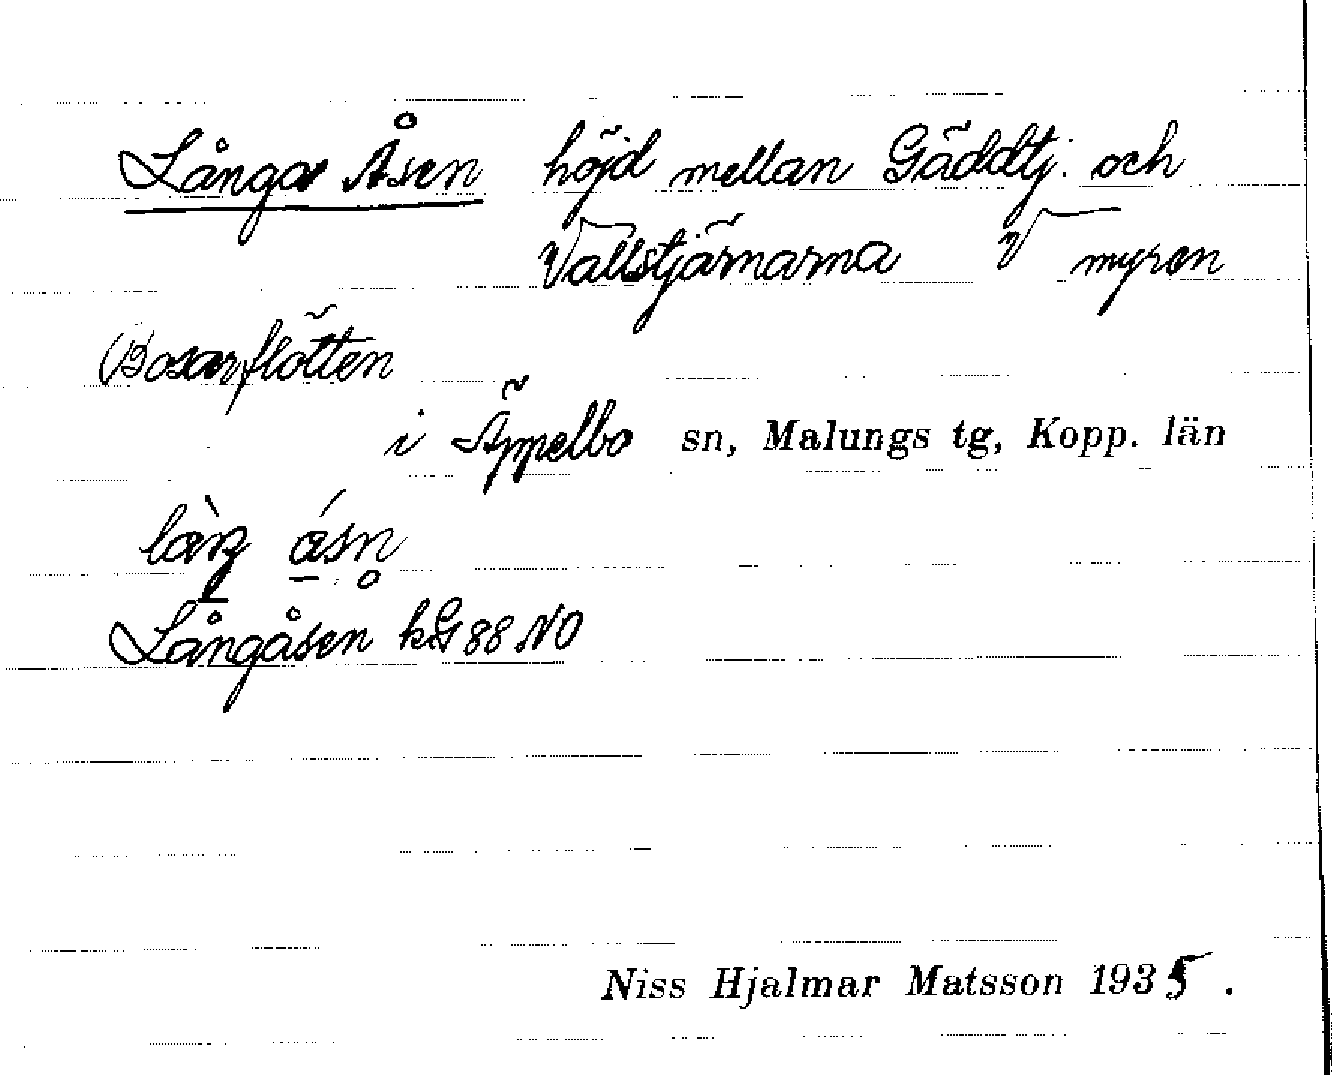 Långa Åsen höjd mellan Gäddtj. och
Vallstjärnarna V myren
Bosarflötten
i Äppelbo sn, Malungs tg, Kopp. län
låŋg åsn̥
Långåsen kG 88 NO
Niss Hjalmar Matsson 1935.